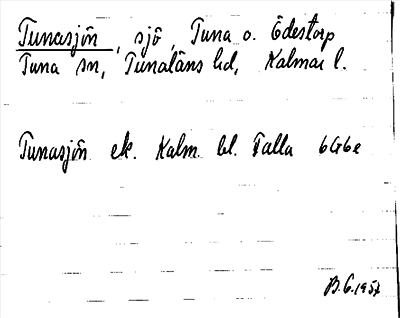 Tunasjön, sjö, Tuna o. Ödestorp
Tuna sn, Tunaläns hd, Kalmar l.
Tunasjön ek. Kalm. bl. Talla 6G6e
B.G. 1957